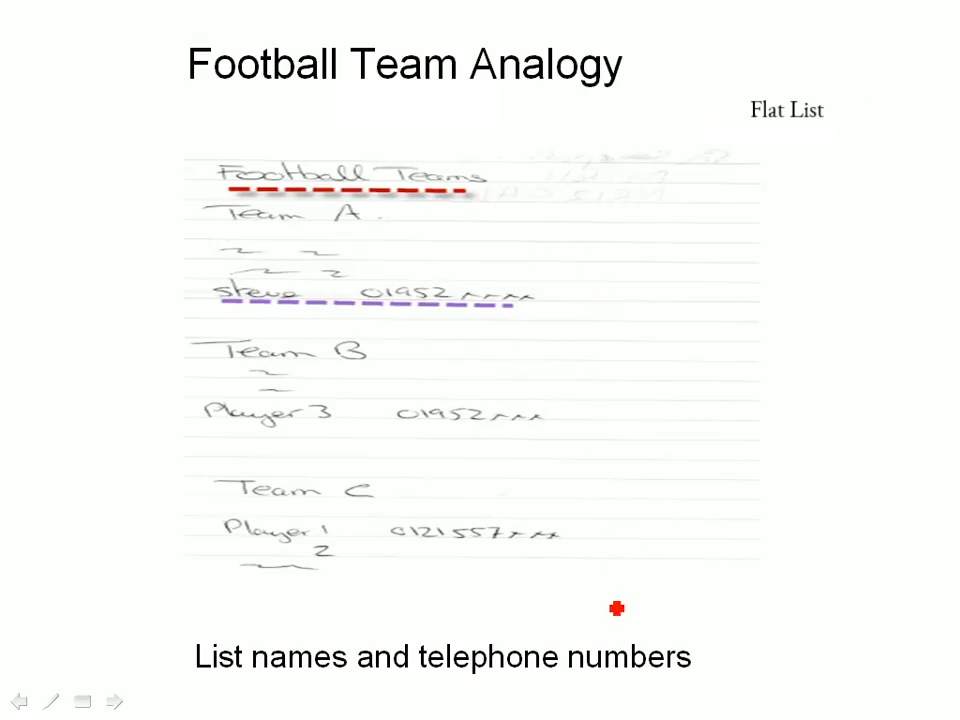 Football Team Analogy
Flat List
Football Teams
Team A
Steve 01952xxxx
Team B
Player 3 01952xxx
Team C
Player 1 0121557xxx
2
List names and telephone numbers